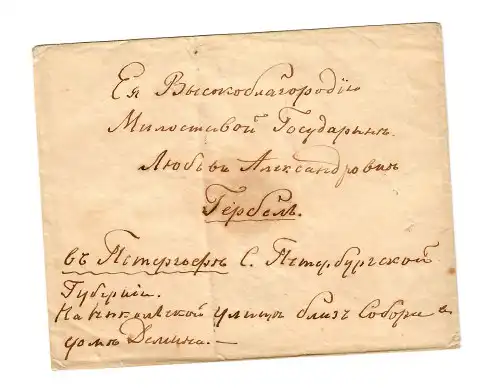 Ея Высокоблагородiю
Милостивой Государынѣ.
Любовѣ Александровнѣ
Гербель.
въ Петергофѣ С. Петербургской
Губернiи.
На улицѣ близъ Собора в
домѣ Демина. —